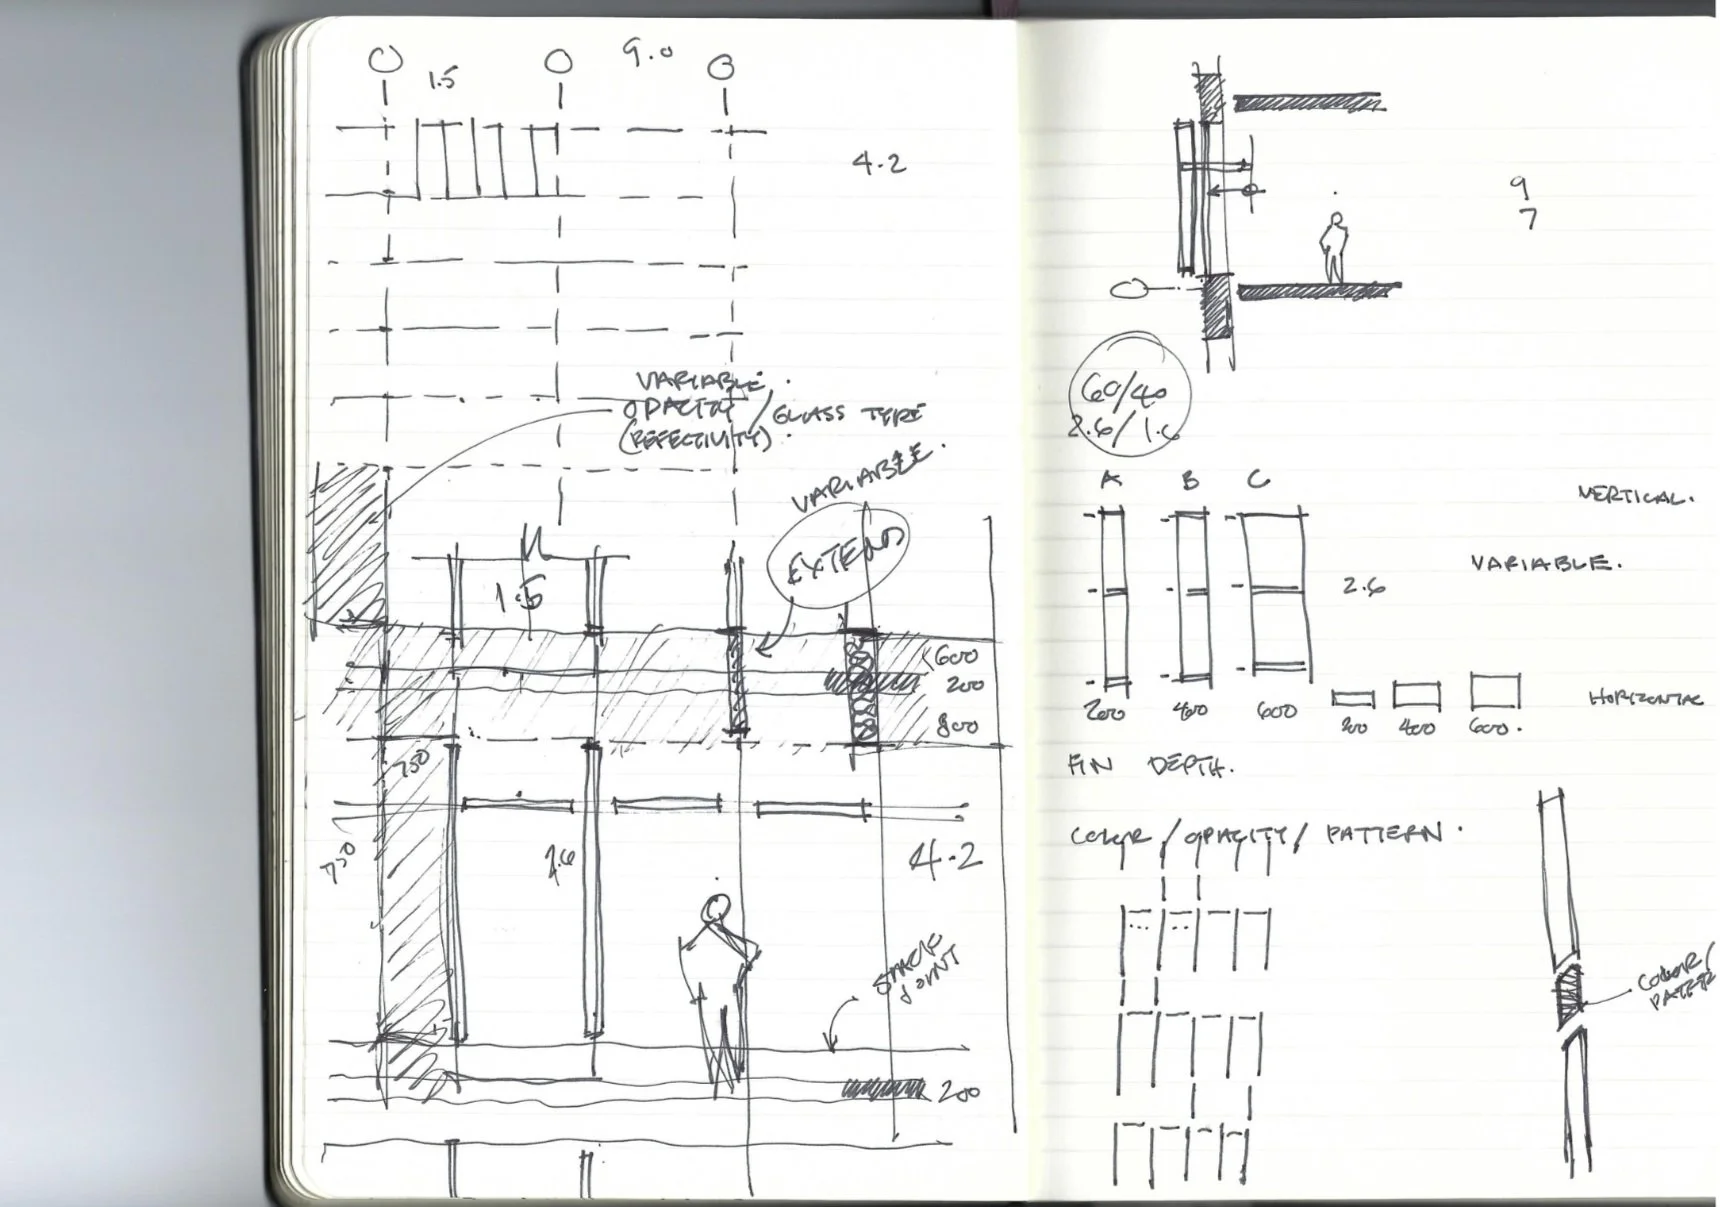 1.5
9.0
4.2
VARIABLE
OPACITY / GLASS TYPE
(REFECTIVITY).
VARIABLE.
EXTEND
1.5
600
200
800
750
750
4.2
STACK
JOINT
200
9
7
60/40
2.6/1.6
A B C
VERTICAL.
VARIABLE.
2.6
200 400 600
200 400 600.
HORIZONTAL
FIN DEPTH.
COLOR / OPACITY / PATTERN.
COLOR/